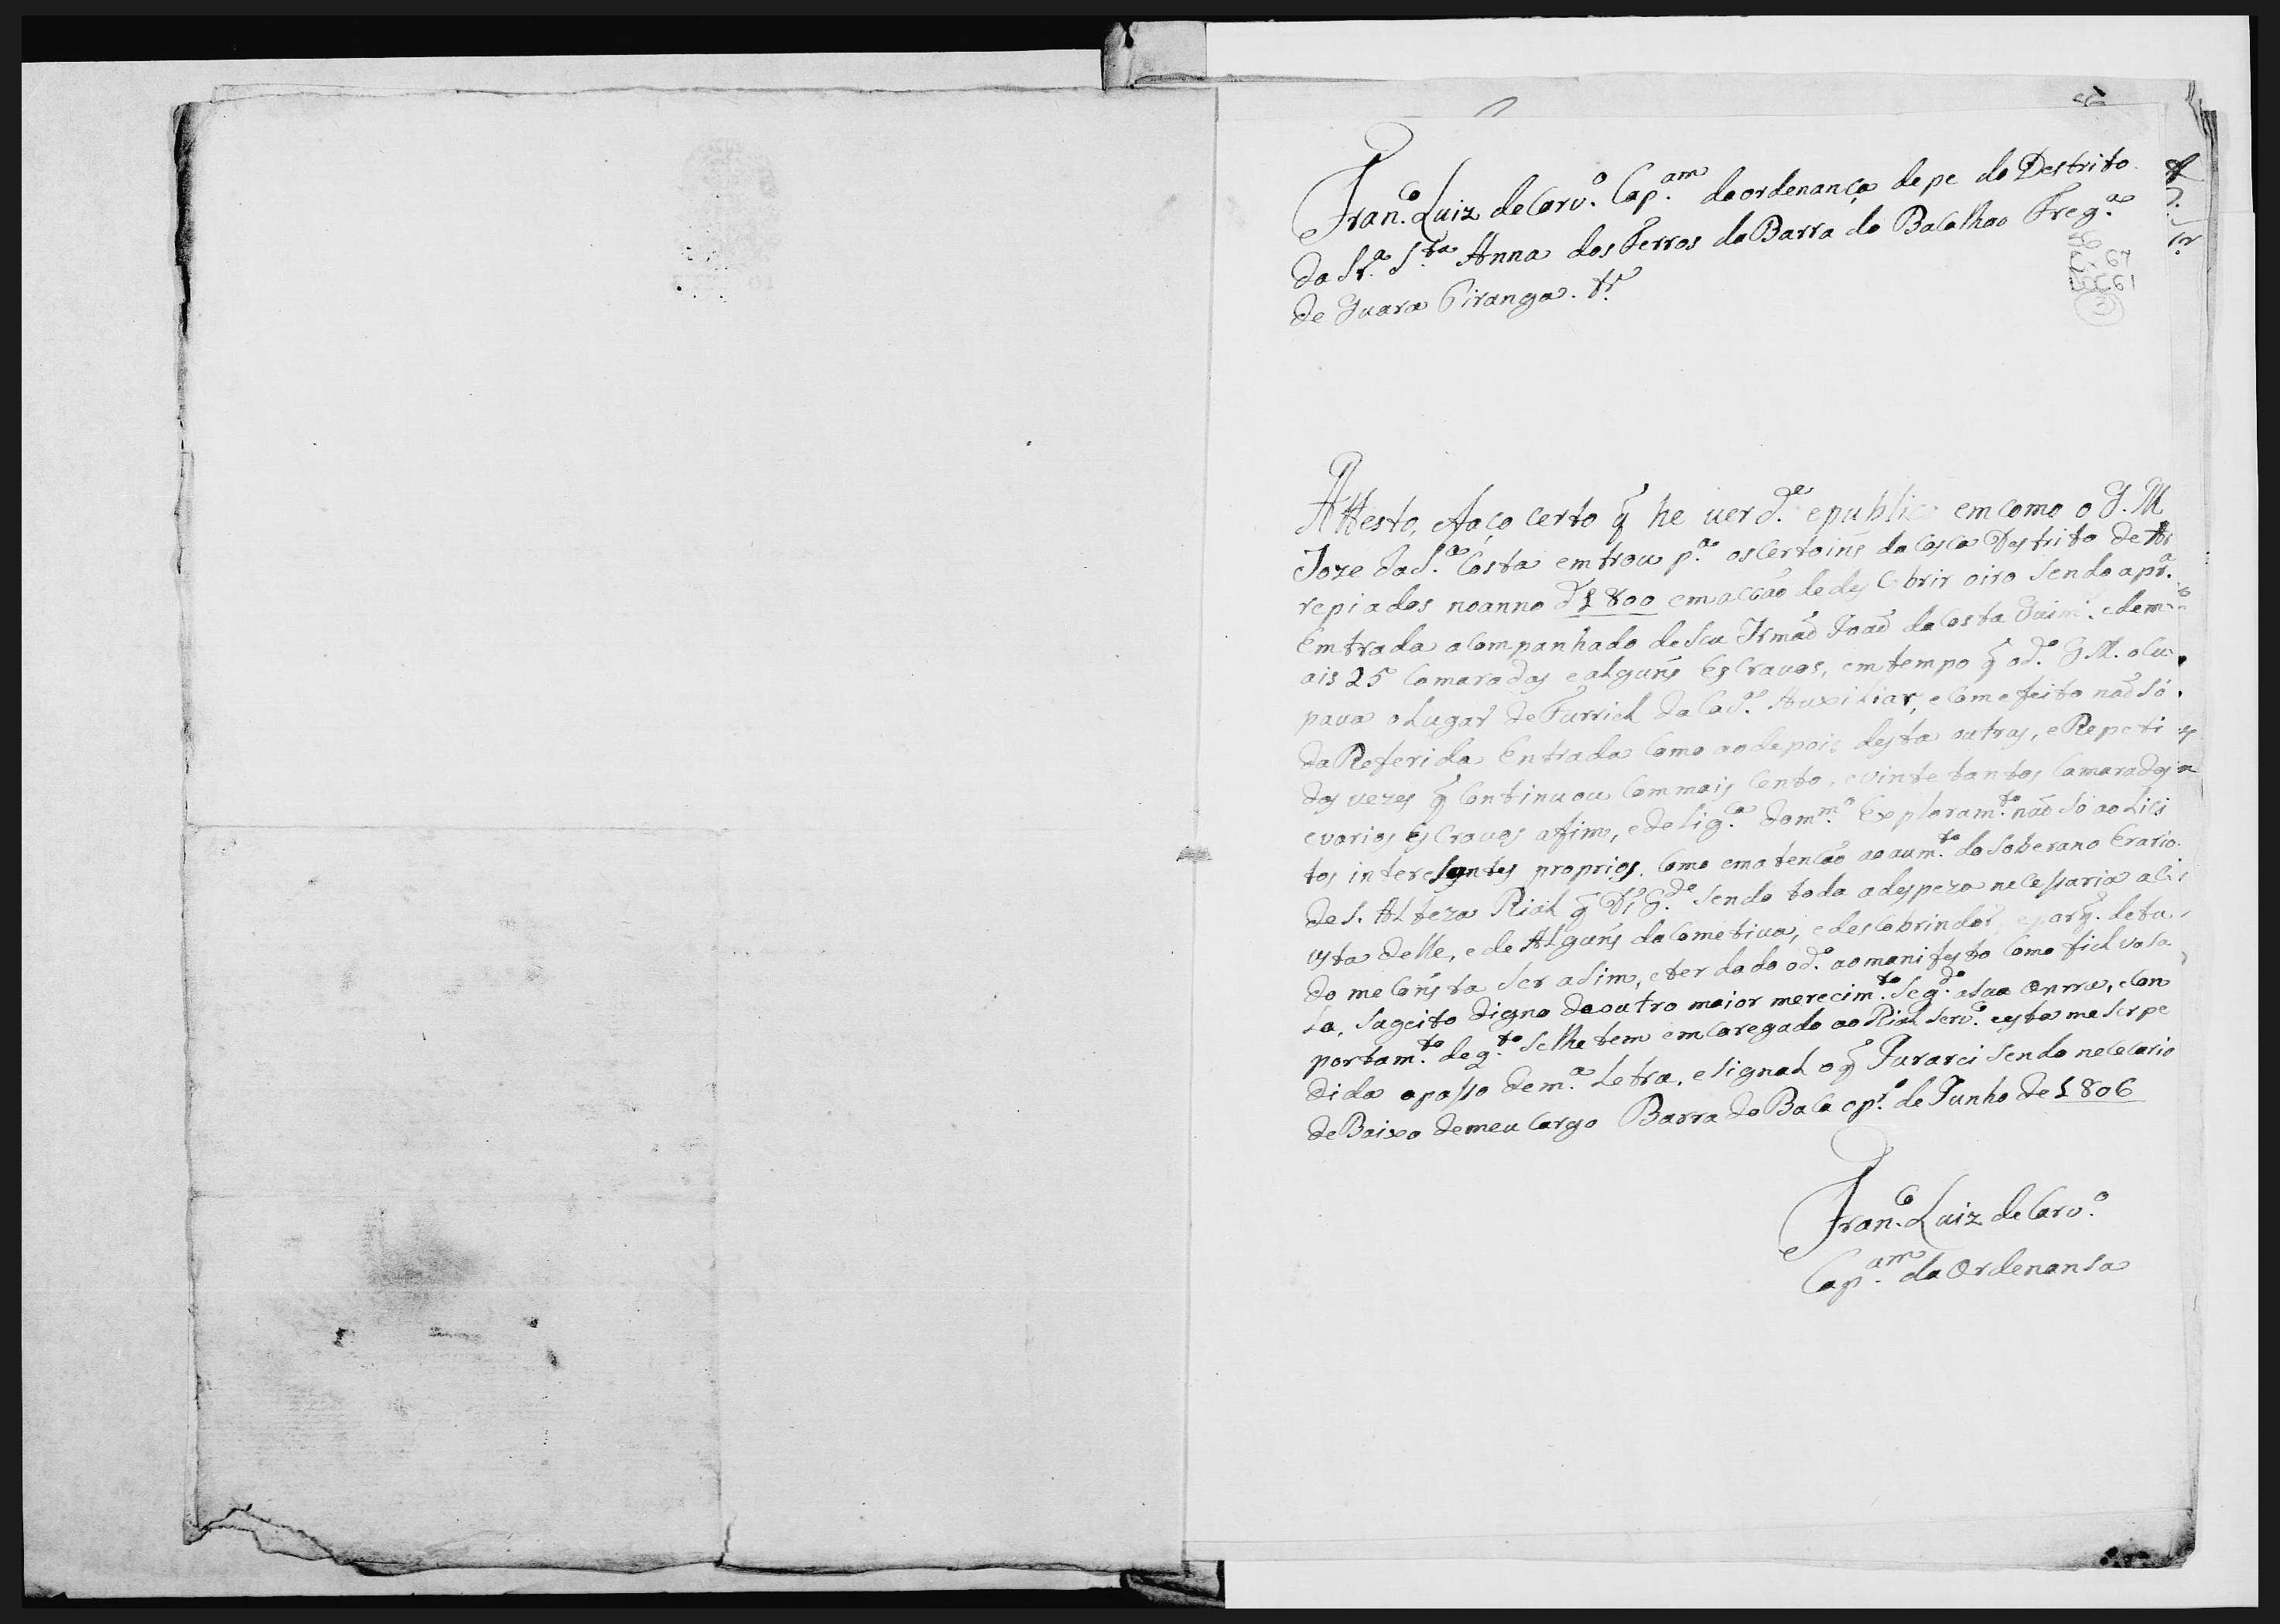 Fran.co Luiz de Carv.o Cap.am da ordenança de pe do Destrito
da Sr.a S.ta Anna dos Ferros da Barra do Bacalhao Freg.a
de Guara Piranga. &.a
Attesto, e faço certo q̃ he uerd.e e publico em como o G. M
Joze da S.a Costa emtrou p.a os Certoiñs da Casca Destrito de Ar
repiados no anno d 1800 em accaõ de des Cobrir oiro sendo a pr.a
Emtrada acompanhado de seu Irmaõ Joaõ da Costa e dem
ais 25 Camaradas e alguñs Escravos, em tempo q̃ o d.o G. M. ocu
pava o Lugar de Furriel da Auxiliar, e com efeito naõ só
da Referida Entrada Como ao depois desta outras, e Repeti
das vezes q̃ Continuou Com mais Cento, e vinte tantos Camaradas
e varios escravos afim, e delig.ca do m.mo Exploram.to naõ só ao Lici
tos interesantes proprios, Como em atencaõ ao aum.to do Soberano Erario
de S. Alteza Rial q̃ D.s G.de sendo toda a despeza necessaria a Cu
usta delle, e de Alguñs da Cometiva, e descobrindo? e parq̃. de tu
do me Coñsta ser asim, e ter dado o d.o ao manifesto Como fiel vasa
lo, Sugeito digno de outro maior merecim.to Seg.do a sua Onrra, e Con
portam.to de q.to se lhe tem emCaregado ao Rial Serv.o e esta me ser pe
dida a passo de m.a Letra, e signal o q̃ Jurarei sendo nececario
de Baixo de meu Cargo Barra do Baca e pr.o de Junho de 1806
Fran.co Luiz de Carv.o
Cap.am da Ordenansa